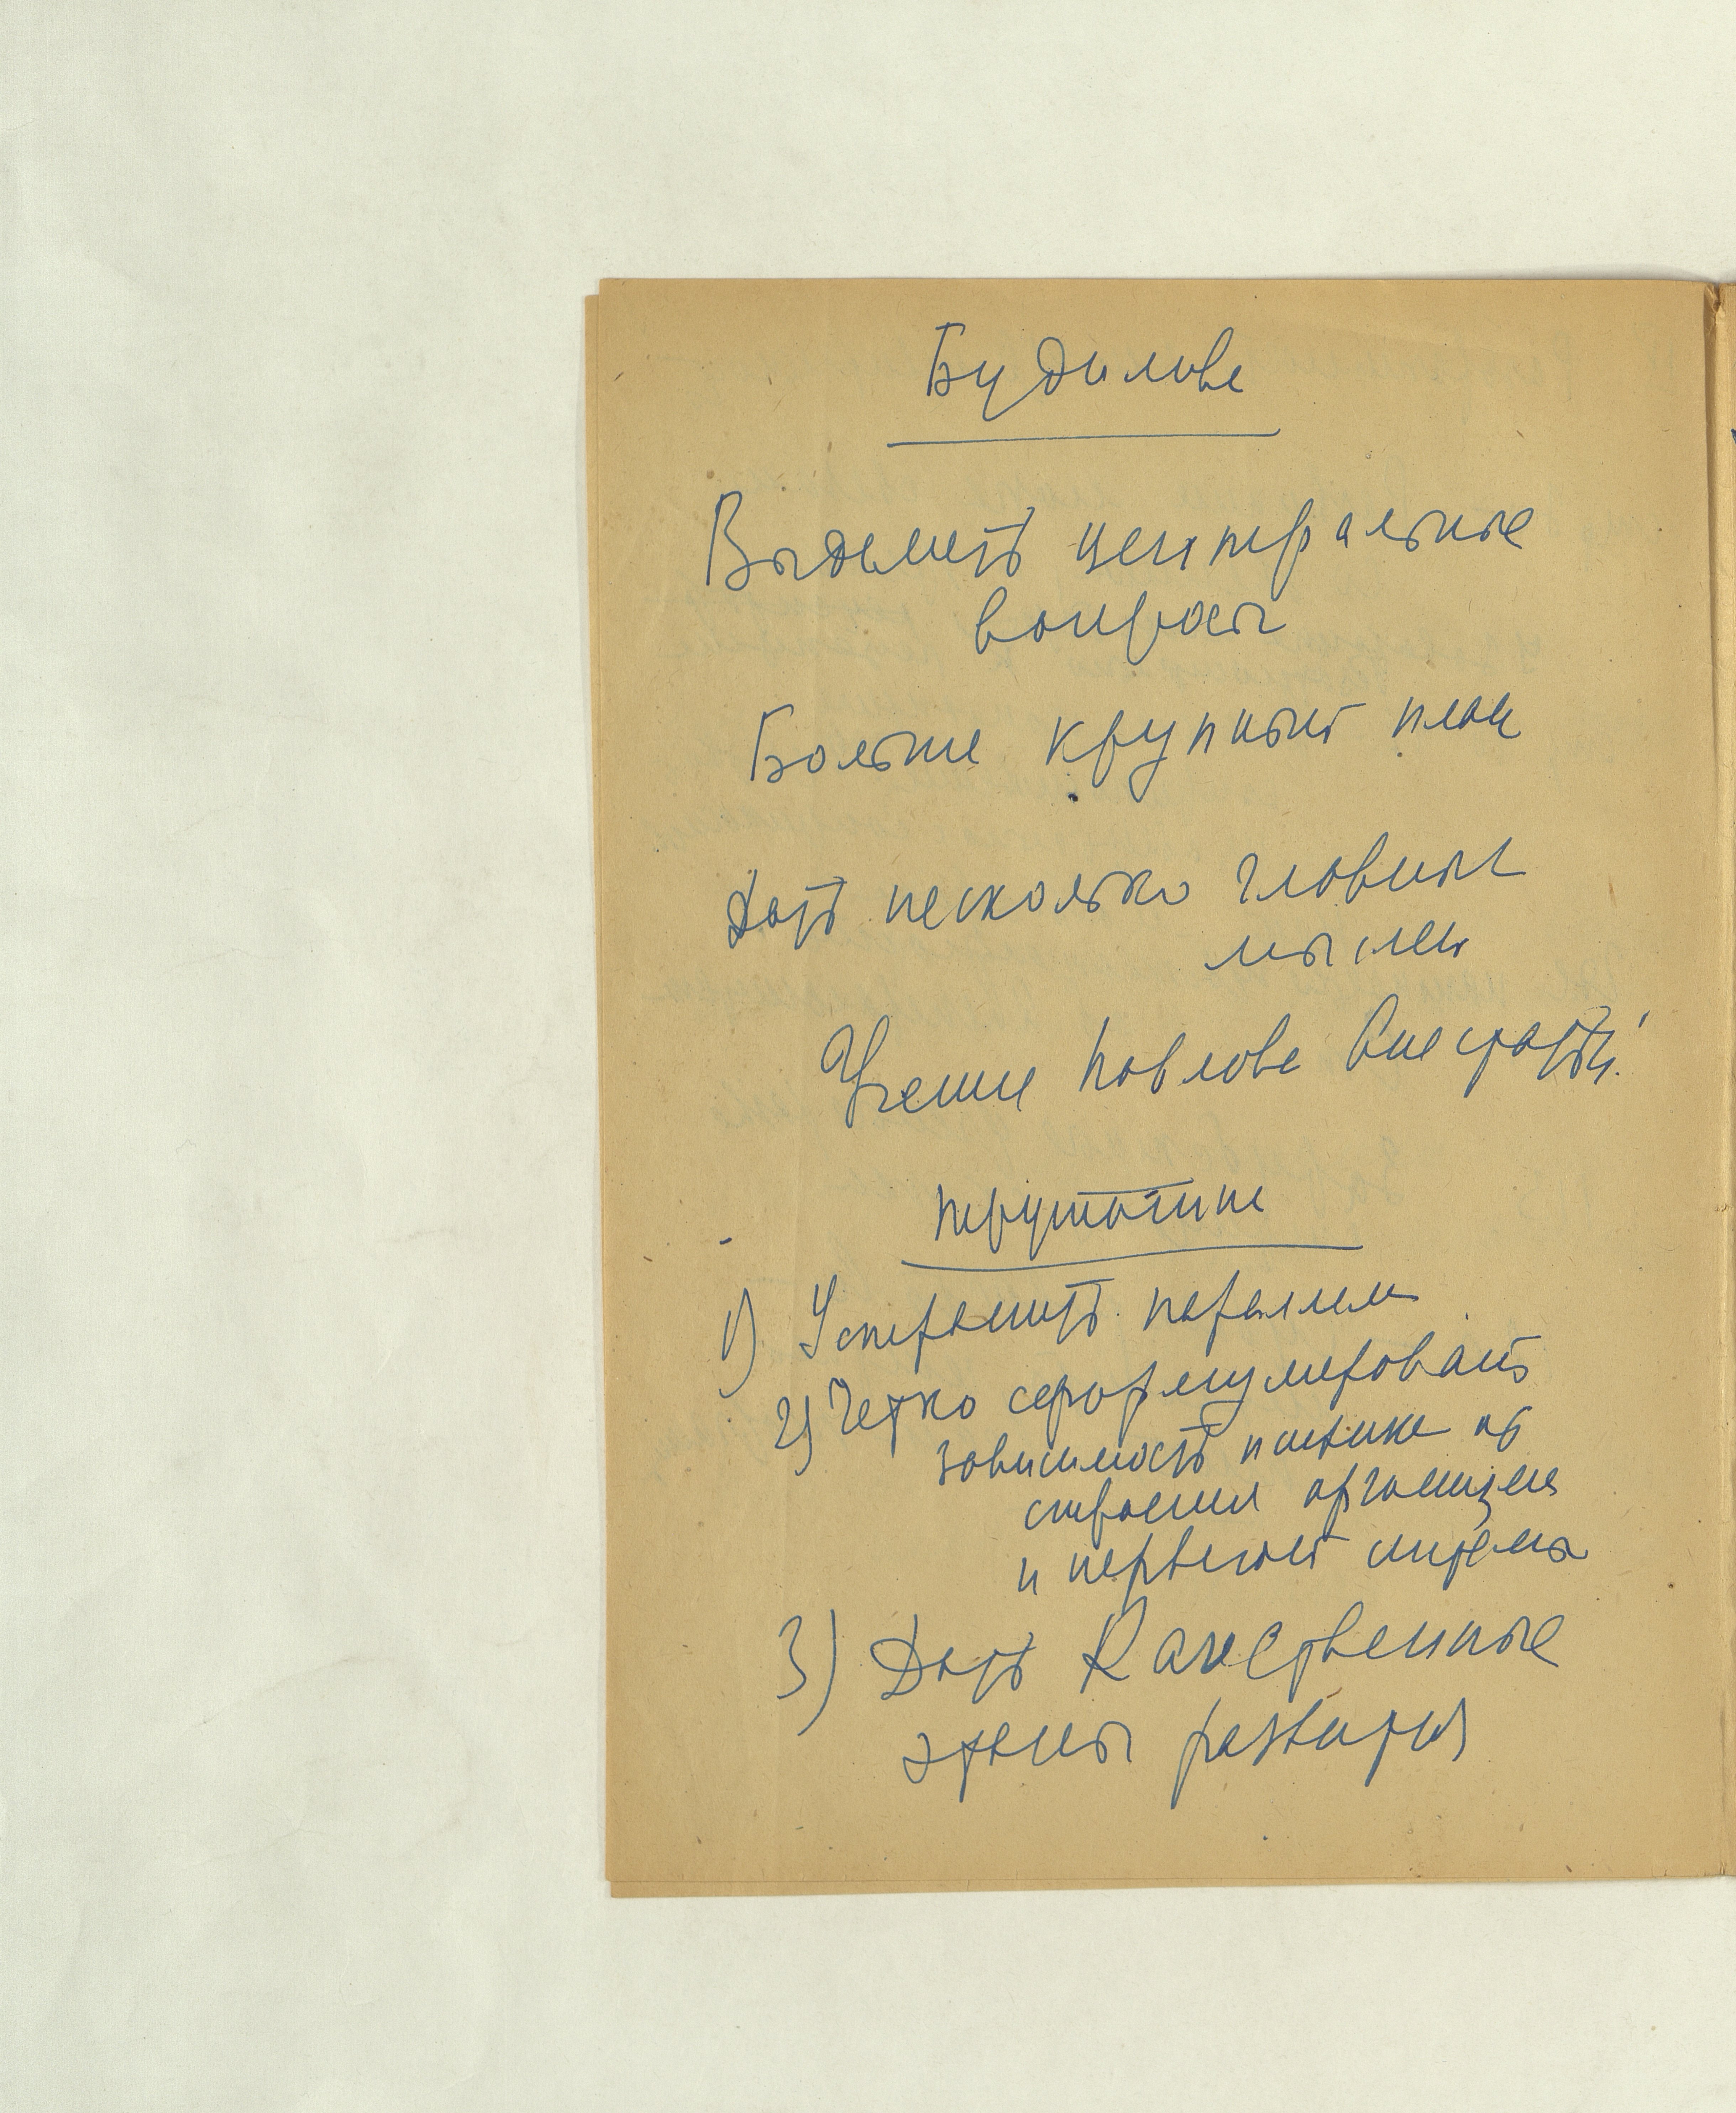 Будилова
Выделить центральные
вопросы
Больше крупный план
Дать несколько главных
мыслей
Учение Павлова
1) Устранить
2) Четко сформулировать
зависимость психики от
строения организма
и нервной системы
3) Дать Качественные
этапы развития